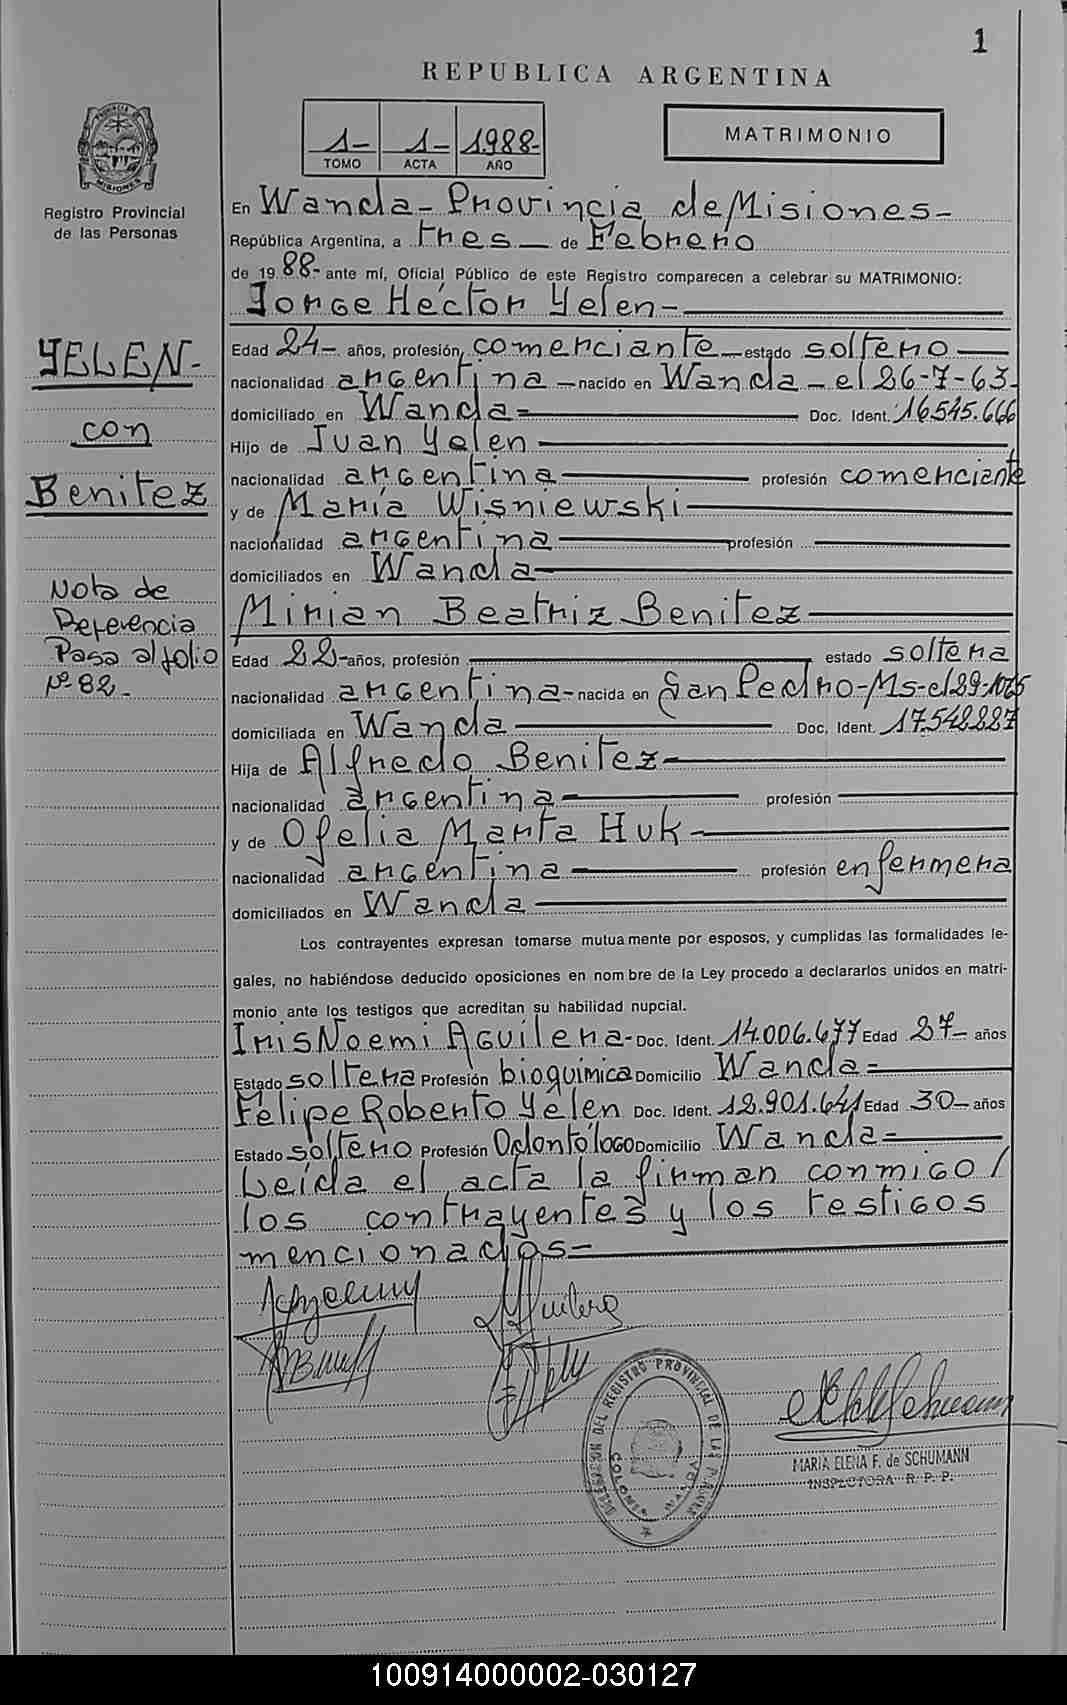 1
REPUBLICA ARGENTINA
1- 1- 1988-
TOMO ACTA AÑO
MATRIMONIO
PROVINCIA DE MISIONES
Registro Provincial
de las Personas
En Wanda - Provincia de Misiones -
República Argentina, a tres — de Febrero
de 19 88- ante mí, Oficial Público de este Registro comparecen a celebrar su MATRIMONIO:
Jorge Héctor Yelen -
YELEN-
con
Benitez
Nota de
Referencia
Pasa al folio
Nº 82 -
Edad 24- años, profesión, comerciante - estado soltero
nacionalidad argentina - nacido en Wanda - el 26-7-63
domiciliado en Wanda - Doc. Ident. 16.545.666
Hijo de Juan Yelen
nacionalidad argentina profesión comerciante
y de María Wisniewski
nacionalidad argentina profesión
domiciliados en Wanda
Mirian Beatriz Benitez
Edad 22- años, profesión estado soltera
nacionalidad argentina - nacida en San Pedro-Ms-el 29-10-65
domiciliada en Wanda Doc. Ident. 17.548.887
Hija de Alfredo Benitez
nacionalidad argentina profesión
y de Ofelia Marta Huk
nacionalidad argentina profesión enfermera
domiciliados en Wanda
Los contrayentes expresan tomarse mutuamente por esposos, y cumplidas las formalidades le-
gales, no habiéndose deducido oposiciones en nombre de la Ley procedo a declararlos unidos en matri-
monio ante los testigos que acreditan su habilidad nupcial.
Iris Noemi Aguilera - Doc. Ident. 14.006.677 Edad 27- años
Estado soltera Profesión bioquimica Domicilio Wanda -
Felipe Roberto Yelen Doc. Ident. 12.901.641 Edad 30- años
Estado soltero Profesión Odontólogo Domicilio Wanda -
Leída el acta la firman conmigo /
los contrayentes y los testigos
mencionados -
DELEGACION DEL REGISTRO PROVINCIAL DE LAS PERSONAS
COLONIA WANDA
MARIA ELENA F. de SCHUMANN
INSPECTORA R. P. P.
100914000002-030127